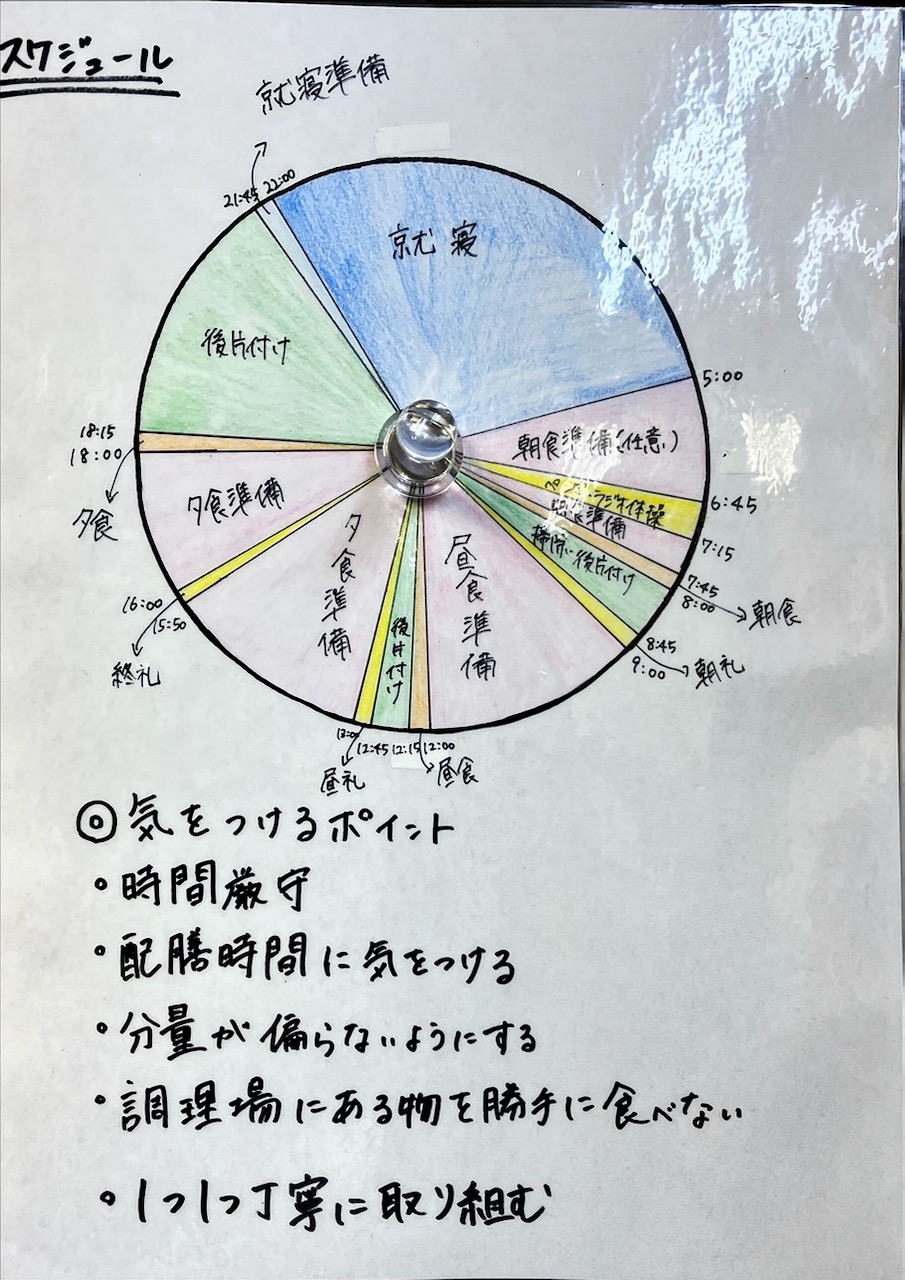 スケジュール
就寝準備
21:45 22:00
就寝
後片付け
5:00
18:15
18:00
夕食
朝食準備(任意)
ラジオ体操
6:45
朝食準備
7:15
掃除・後片付け
7:45
8:00
朝食
夕食準備
夕食準備
昼食準備
後片付け
8:45
9:00
朝礼
16:00
15:50
終礼
13:00
12:45 12:15 12:00
昼礼
昼食
◎気をつけるポイント
・時間厳守
・配膳時間に気をつける
・分量が偏らないようにする
・調理場にある物を勝手に食べない
・1つ1つ丁寧に取り組む